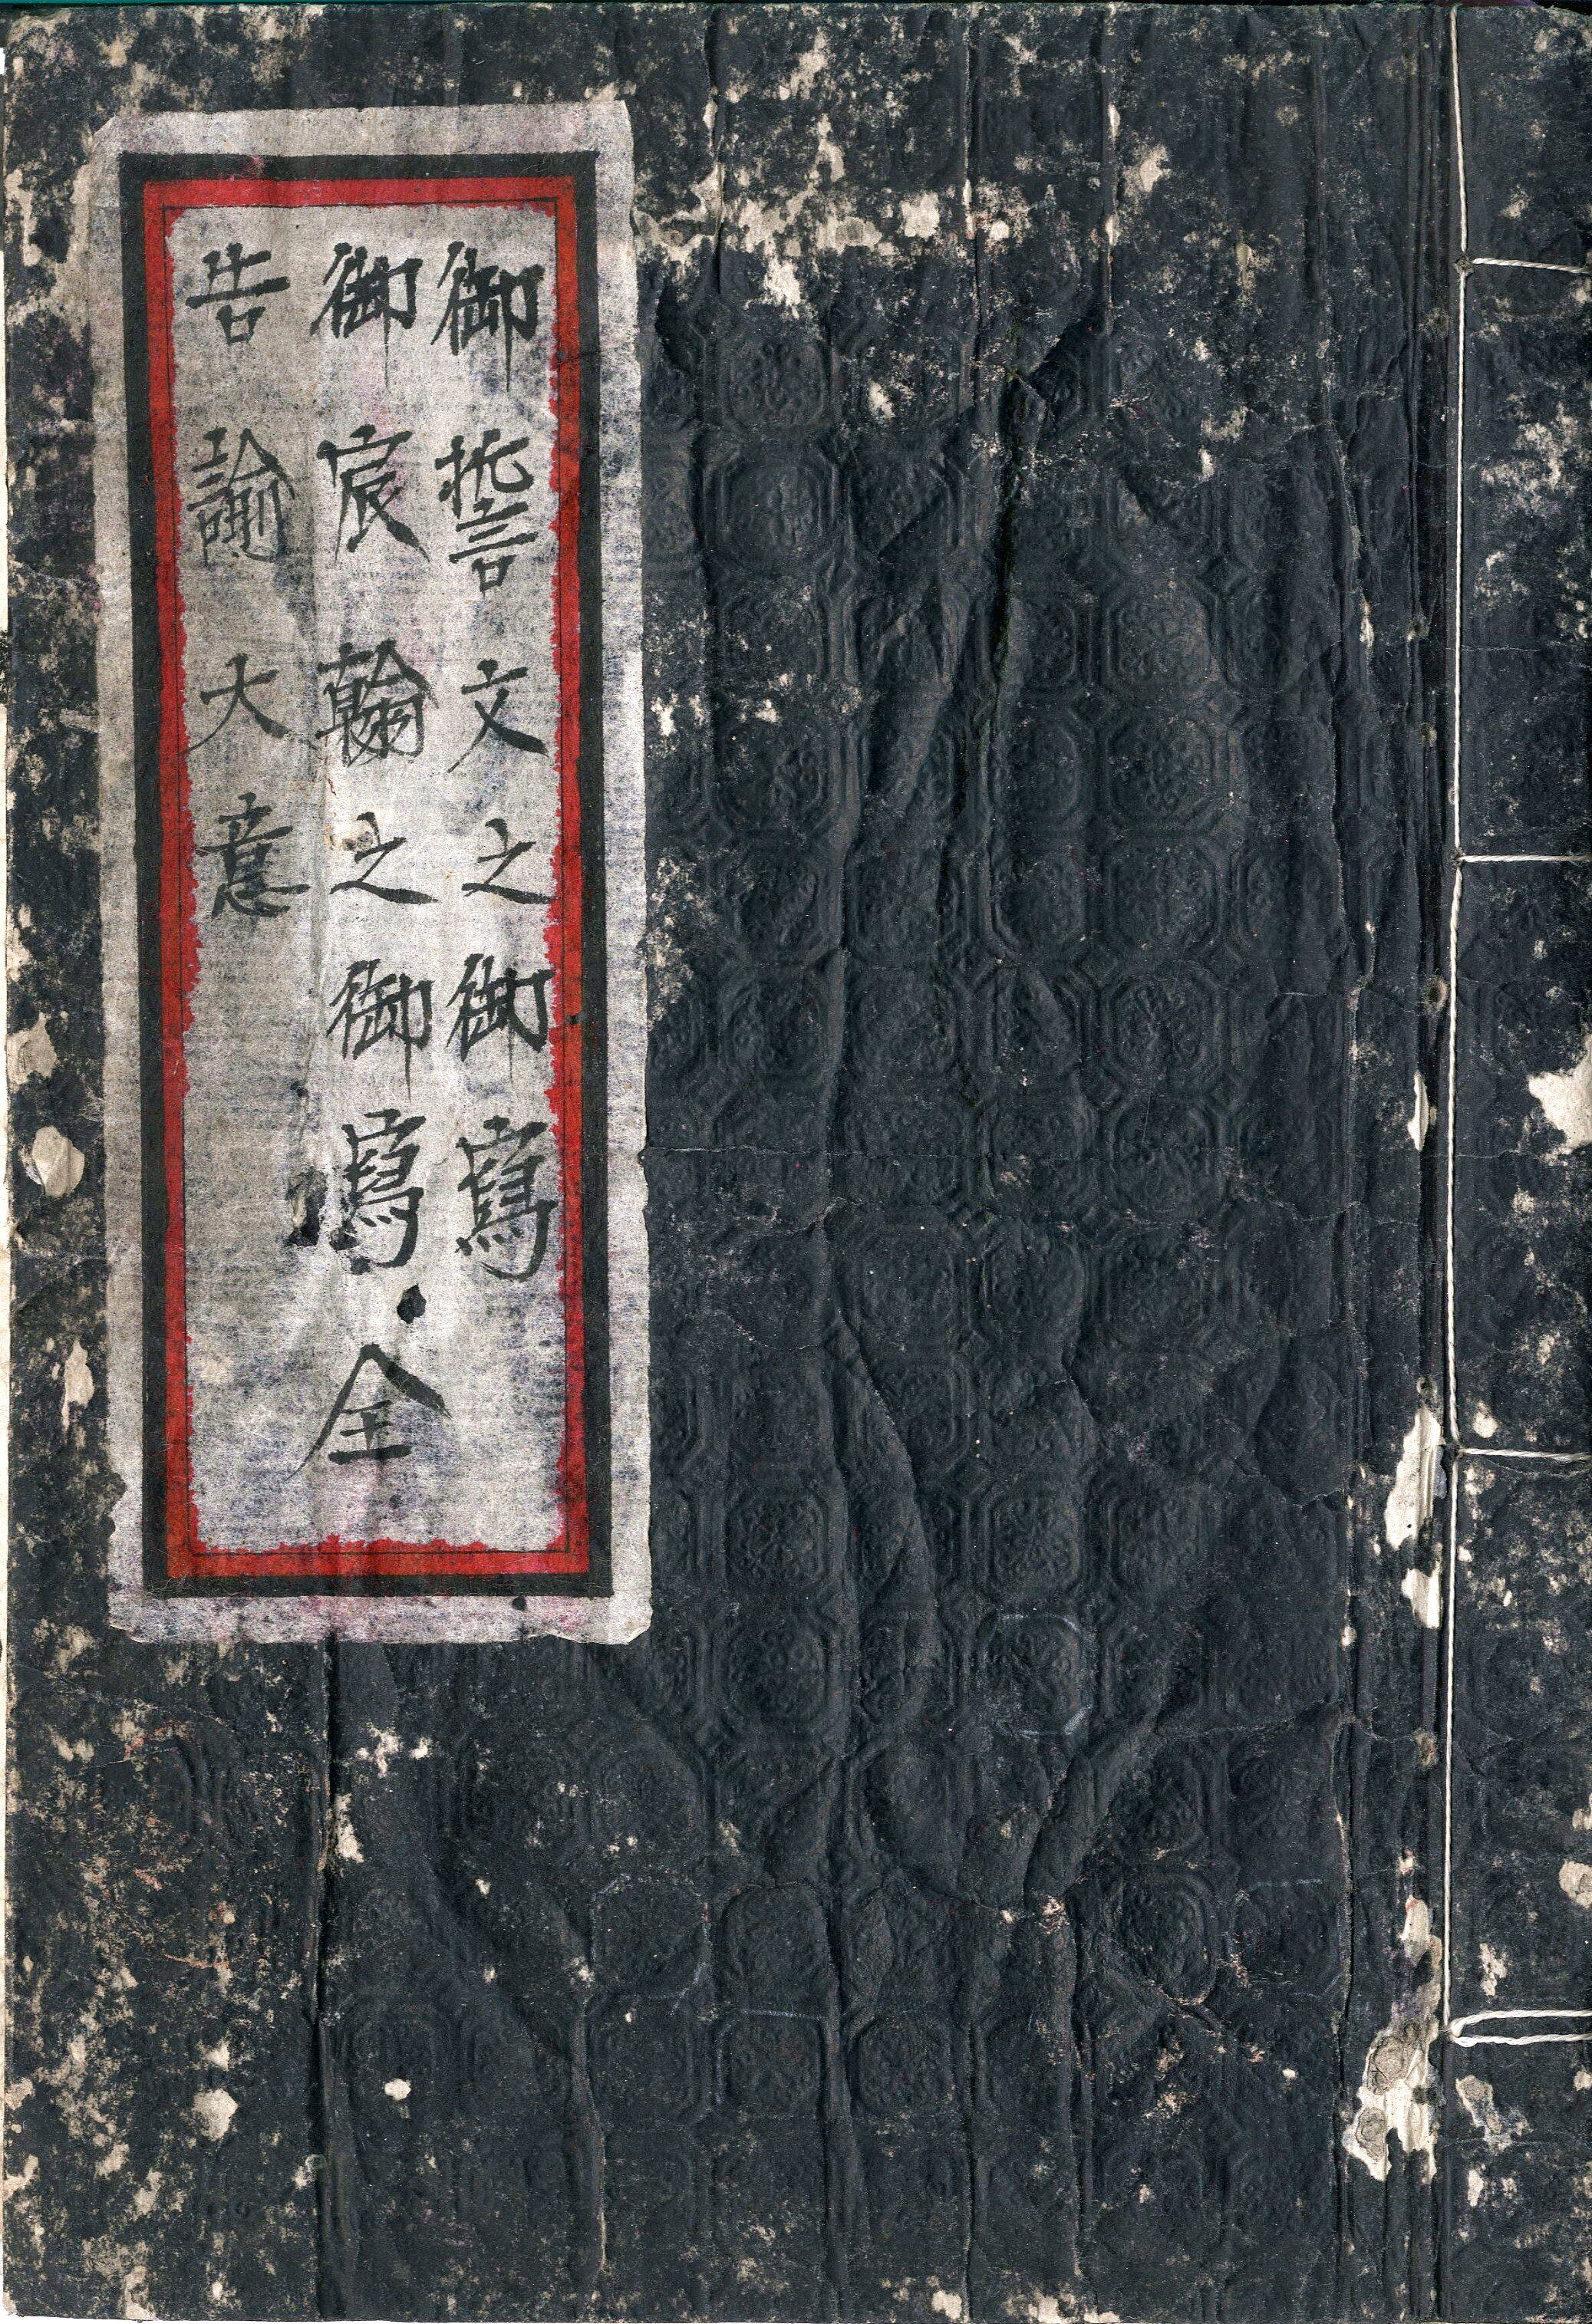 御誓文之御寫
御宸翰之御寫・全
告諭大意